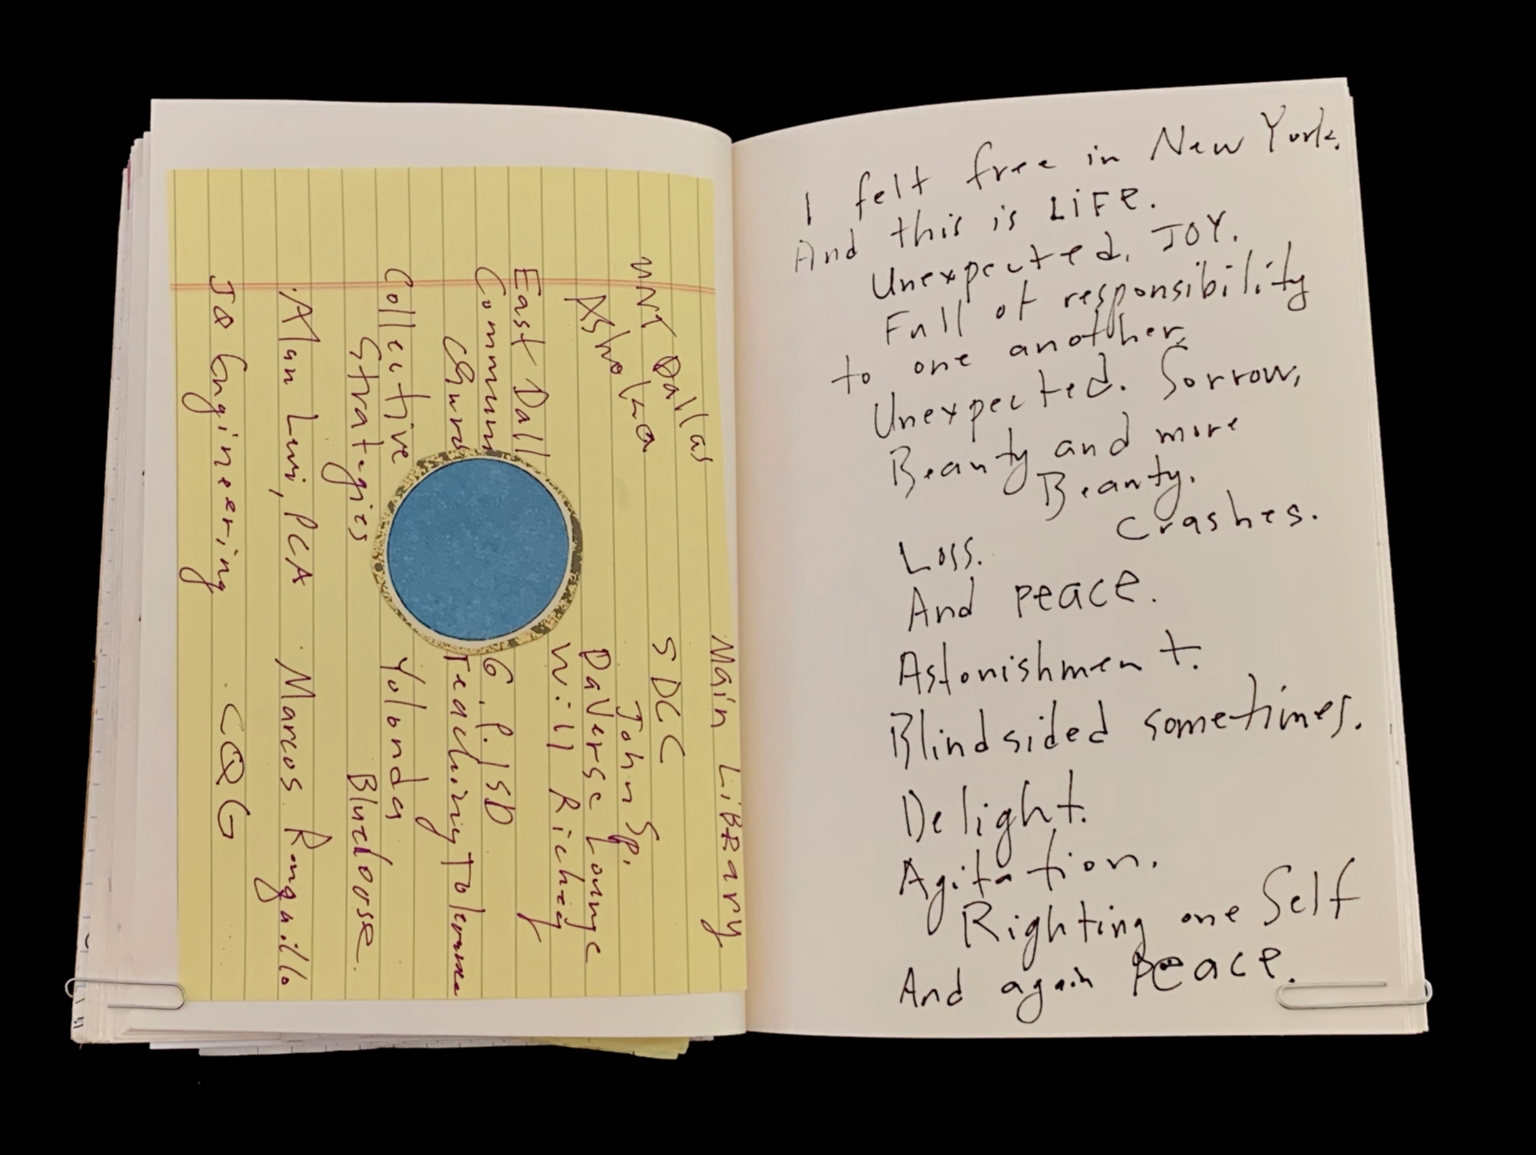 Main LiBRary
UNT Dallas
SDCC
Ashoka
John Sp.
DaVerse Lounge
Will Richey
East Dall
Commun
G.P. ISD
Teaching Tolerance
Collective
Strategies
Yolonda
Bluedoorse.
Alan Levi, PCA
Marcos Ronquillo
JQ Engineering
CQG
I felt free in New York.
And this is LiFe.
Unexpected. JOY.
Full of responsibility
to one another.
Unexpected. Sorrow,
Beauty and more
Beauty.
Crashes.
Loss.
And peace.
Astonishment.
Blindsided sometimes.
Delight.
Agitation.
Righting one Self
And again Peace.